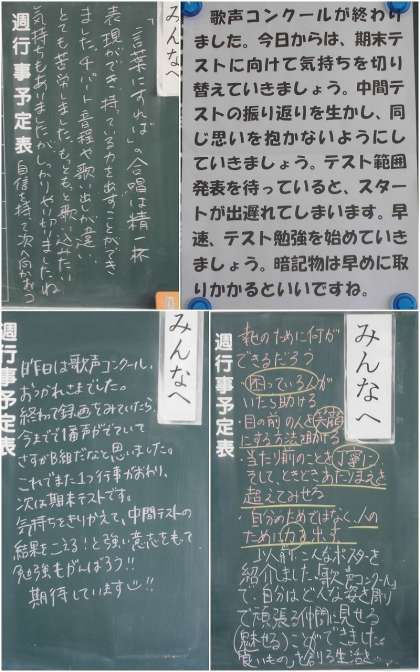 みんなへ
「言葉にすれば」の合唱は精一杯
表現ができ、持っている力を出すことができ
ました。4パート、音程や歌い出しが違い、
とても苦労しました。もっともっと歌い込みたい
気持ちもありましたが、しっかりやり切りましたね
自信を持って次へ向かおう
週行事予定表
歌声コンクールが終わり
ました。今日からは、期末テ
ストに向けて気持ちを切り
替えていきましょう。中間テ
ストの振り返りを生かし、同
じ思いを抱かないようにし
ていきましょう。テスト範囲
発表を待っていると、スター
トが出遅れてしまいます。早
速、テスト勉強を始めていき
ましょう。暗記物は早めに取
りかかるといいですね。
みんなへ
週行事予定表
昨日は歌声コンクール、
おつかれさまでした。
終わって録画をみていたら、
今までで1番声がでていて
さすがB組だなと思いました。
これでまた1つ行事がおわり、
次は期末テストです。
気持ちをきりかえて、中間テストの
結果をこえる!と強い意志をもって
勉強もがんばろう!!
期待しています!!
みんなへ
週行事予定表
のために何が
できるだろう
・困っている人が
いたら助ける
・目の前の人を笑顔
にする方法
・当たり前のことを丁寧に
そして、ときどきあたりまえを
超えてみせる
・自分のためではなく、人の
ために力を出す
こんなポスターを
紹介しました。「歌声コンクール」
で、自分はどんな姿を
で頑張る仲間に見せる
(魅せる)ことができました